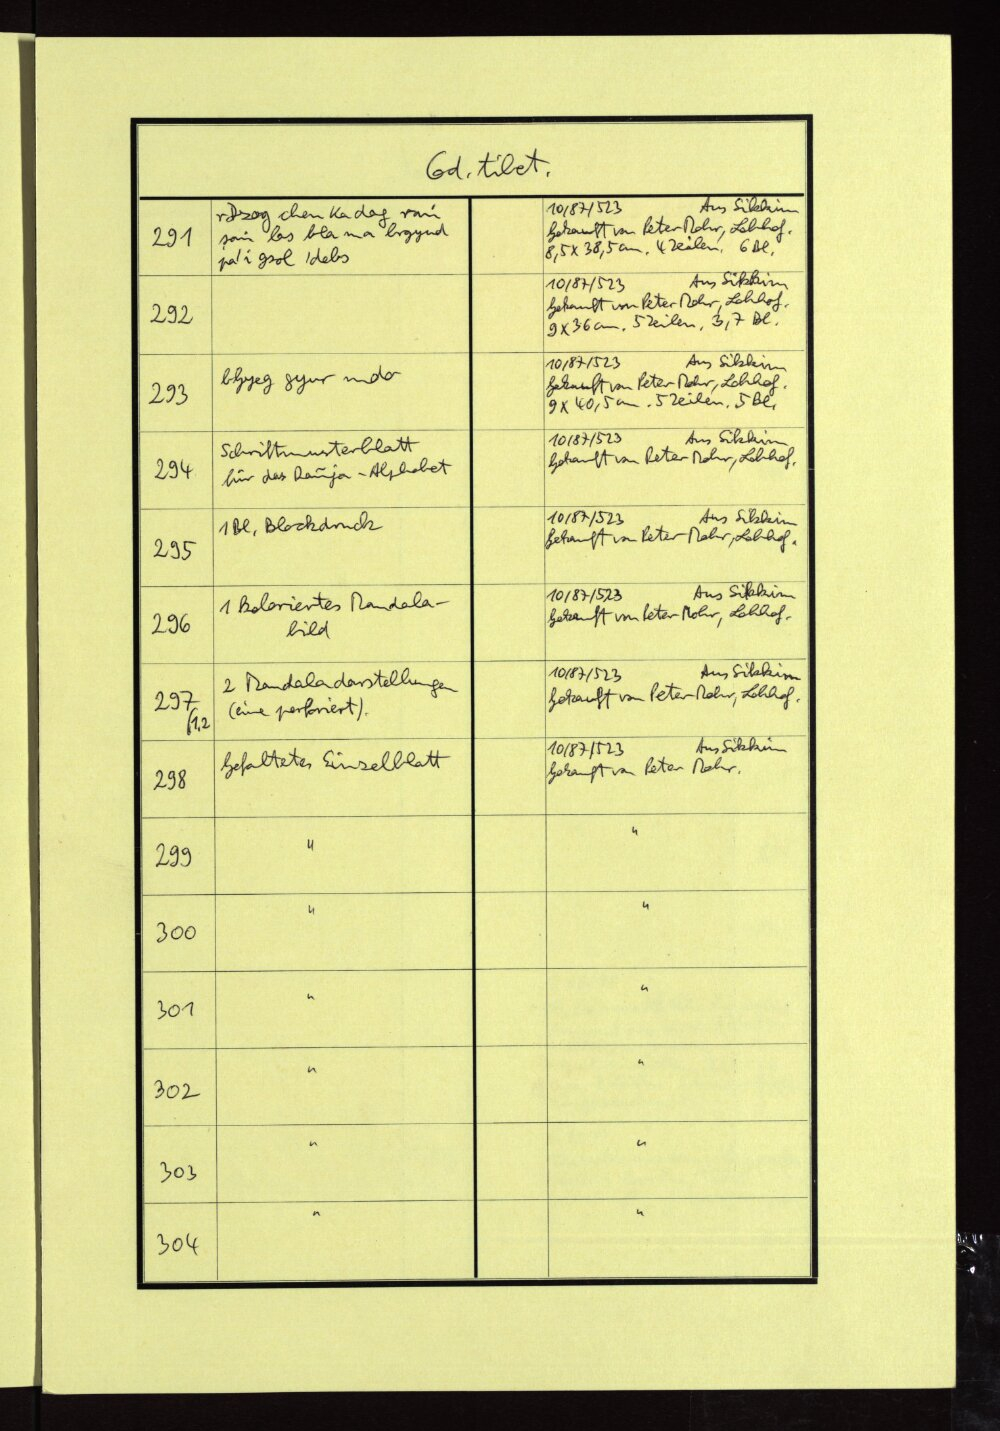 Cod. tibet.
291
rDzog chen Ka dag raṅ
śaṅ las bla ma brgyud
pa'i gsol 'debs
10/87/523 Aus Sikkim
Gekauft von Peter Mohr, Lohhof.
8,5 x 38,5 cm. 4 Zeilen. 6 Bl.
292
10/87/523 Aus Sikkim
Gekauft von Peter Mohr, Lohhof.
9 x 36 cm. 5 Zeilen. 3,7 Bl.
293
bgyur mdo
10/87/523 Aus Sikkim
Gekauft von Peter Mohr, Lohhof.
9 x 40,5 cm. 5 Zeilen. 5 Bl.
294
Schriftmusterblatt
für das Rañja-Alphabet
10/87/523 Aus Sikkim
Gekauft von Peter Mohr, Lohhof.
295
1 Bl. Blockdruck
10/87/523 Aus Sikkim
Gekauft von Peter Mohr, Lohhof.
296
1 koloriertes Mandala-
bild
10/87/523 Aus Sikkim
Gekauft von Peter Mohr, Lohhof.
297/1,2
2 Mandaladarstellungen
(eine perforiert).
10/87/523 Aus Sikkim
Gekauft von Peter Mohr, Lohhof.
298
Gefaltetes Einzelblatt
10/87/523 Aus Sikkim
Gekauft von Peter Mohr.
299 " "
300 " "
301 " "
302 " "
303 " "
304 " "